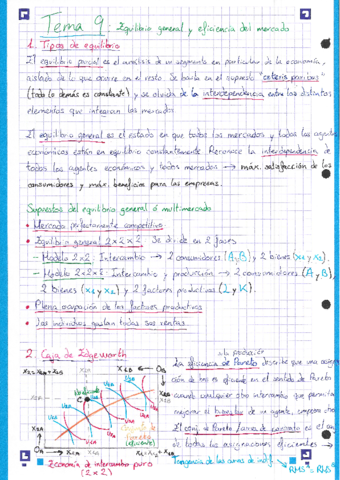 Tema 9: Equilibrio general y eficiencia del mercado
1. Tipos de equilibrio
El equilibrio parcial es el análisis de un segmento en particular de la economía,
aislado de lo que ocurre en el resto. Se basa en el supuesto "ceteris paribus"
(todo lo demás es constante) y se olvida de la interdependencia entre los distintos
elementos que integran los mercados.
El equilibrio general es el estado en que todos los mercados y todos los agentes
económicos están en equilibrio constantemente. Reconoce la interdependencia de
todos los agentes económicos y todos mercados → máx. satisfacción de los
consumidores y máx. beneficio para las empresas.
Supuestos del equilibrio general o multimercado
• Mercado perfectamente competitivo
• Equilibrio general 2x2x2. Se divide en 2 fases
- Modelo 2x2: Intercambio → 2 consumidores (A, B) y 2 bienes (x₁ y x₂).
- Modelo 2x2x2: Intercambio y producción → 2 consumidores (A y B),
2 bienes (x₁ y x₂) y 2 factores productivos (L y K).
• Plena ocupación de los factores productivos
• Los individuos gastan todas sus rentas
2. Caja de Edgeworth
La eficiencia de Pareto describe que una asign
ción de tros es eficiente en el sentido de Pareto
cuando cualquier otro intercambio que permita
mejorar el bienestar de un agente, empeora otro
El conj. de Pareto / curva de contrato es el
de todas las asignaciones eficientes →
Tangencia de las curvas de indif.
Economía de intercambio puro
(2x2)